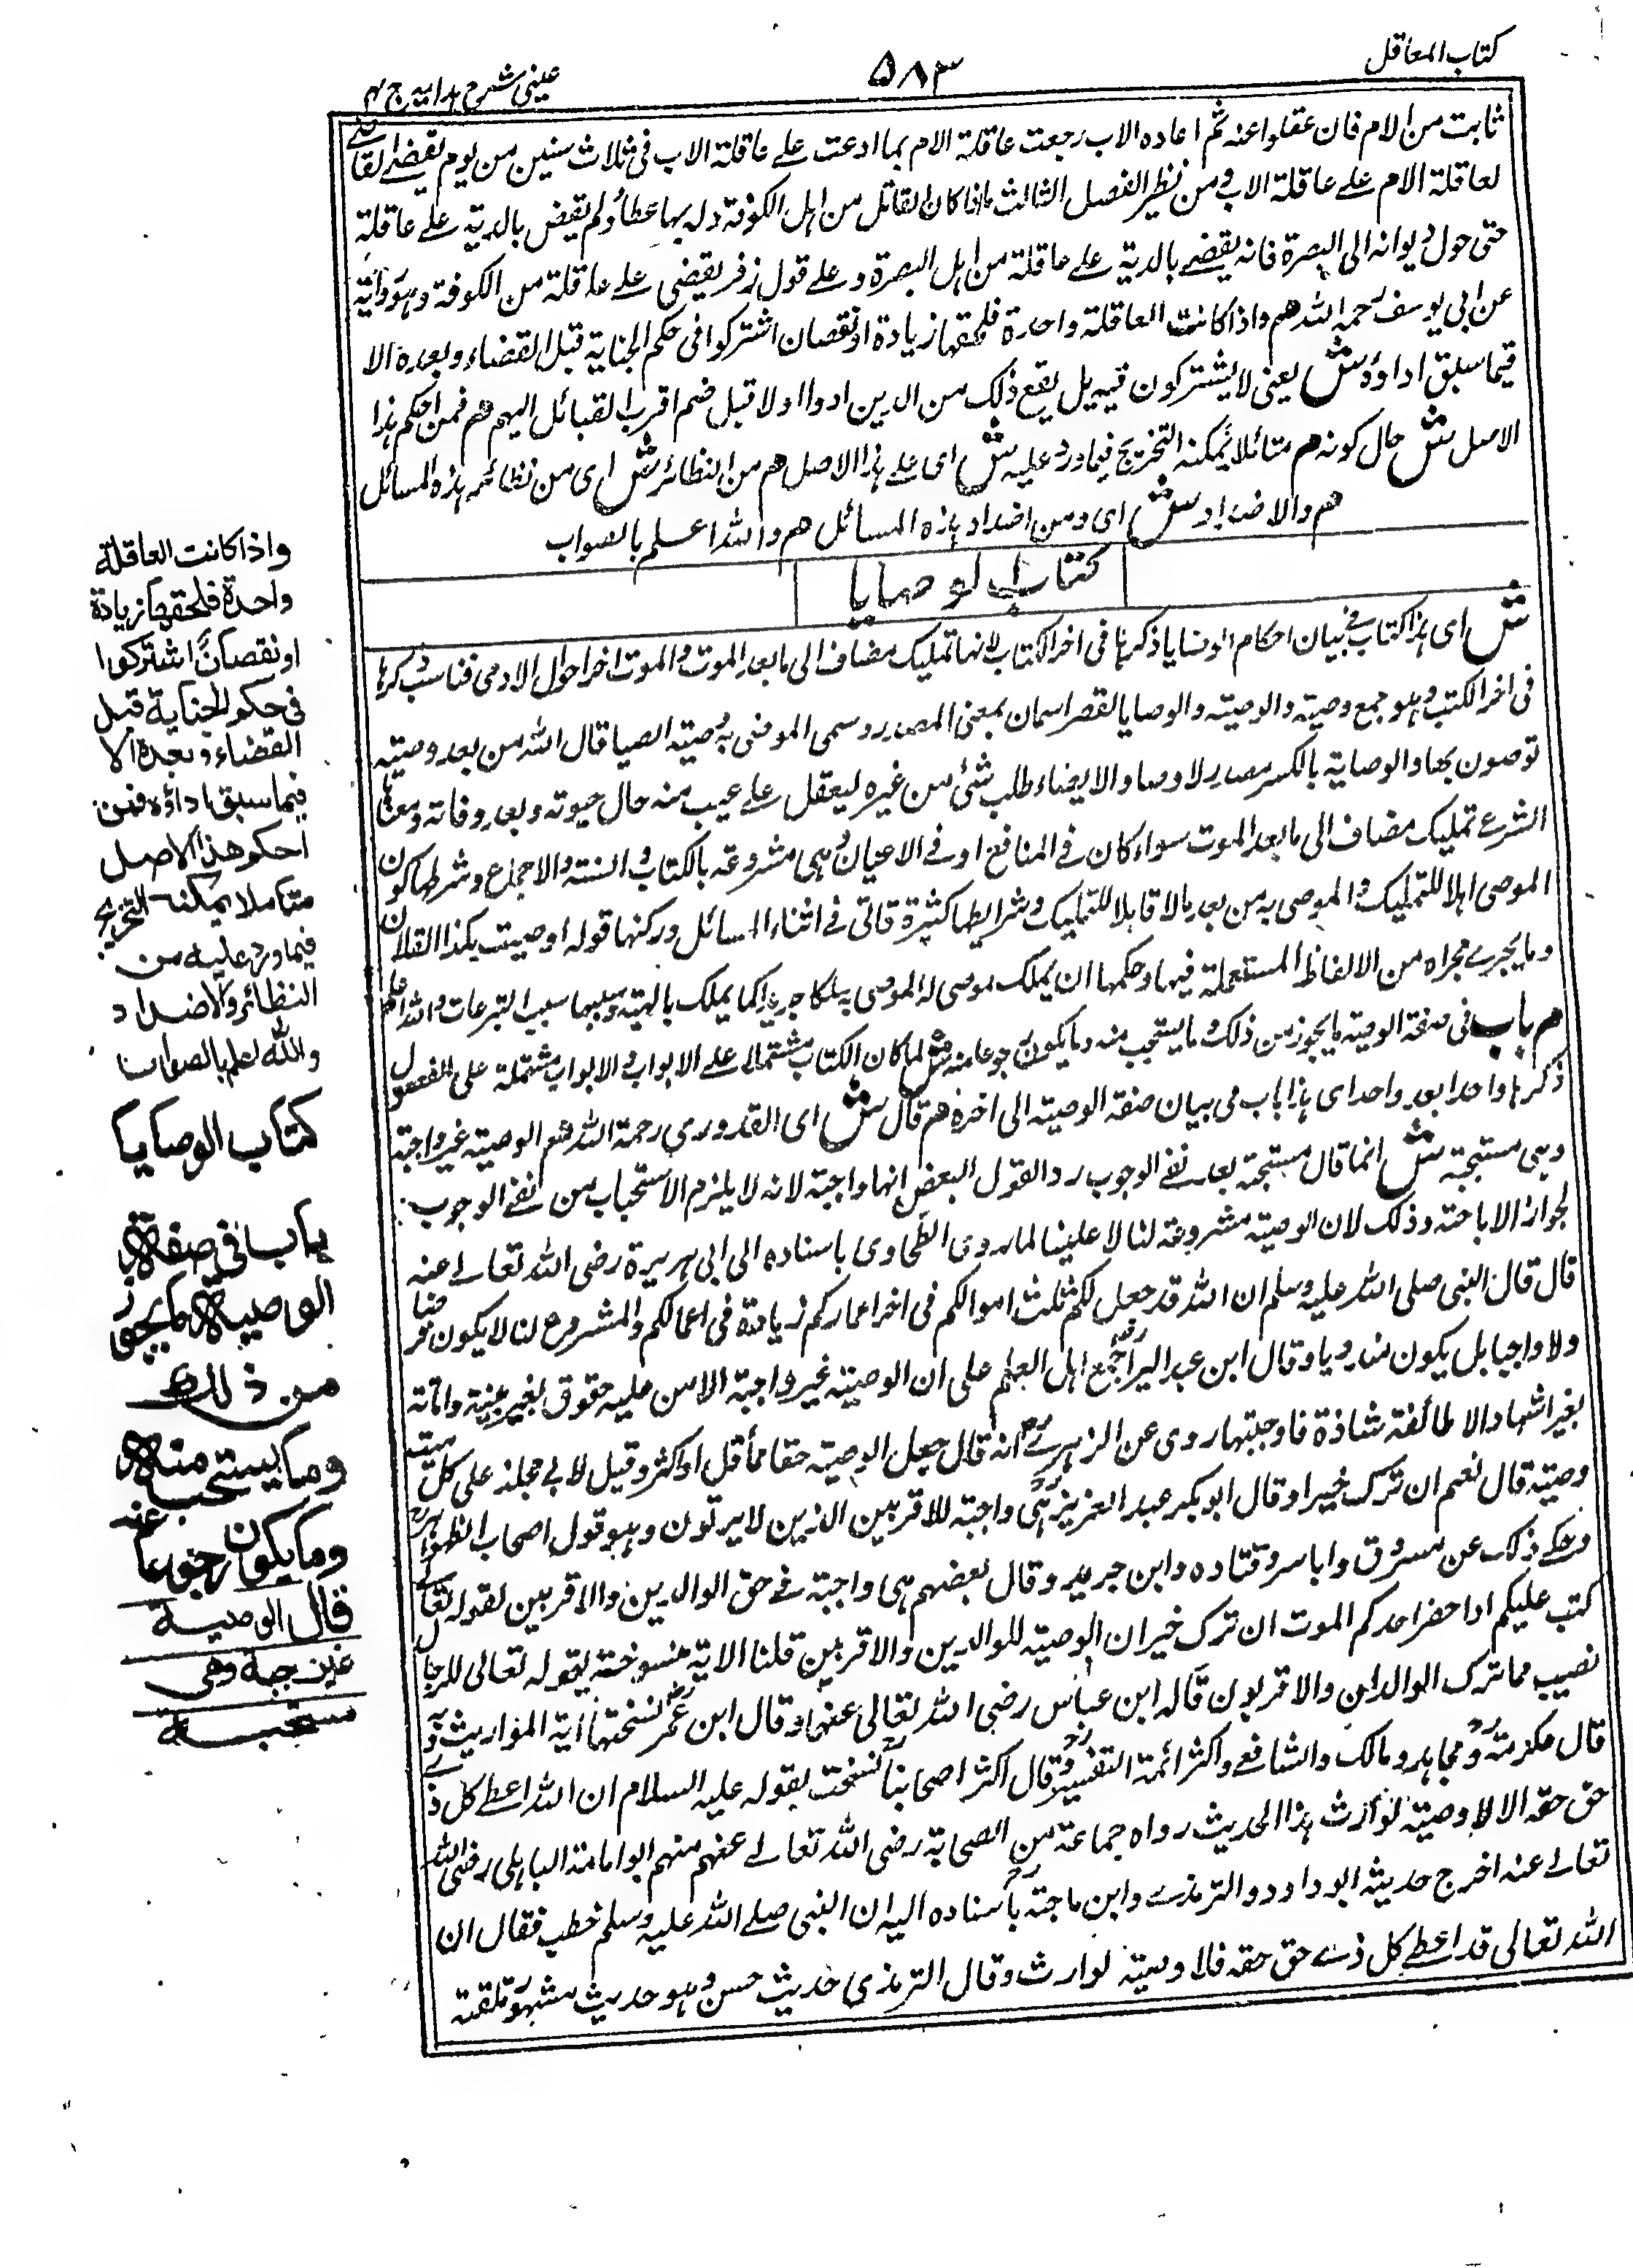 كتاب المعاقل
۵۸۳
عینی شرح ہدایہ ج ۴
ثابت من الام فان عقلوا عنه ثم اعاده الاب رجعت عاقلة الام بما ادعت علے عاقلة الاب فی ثلاث سنین من یوم یقضی القاضے
لعاقلة الام علے عاقلة الاب ومن نظیر الفصل الثالث ما اذا كان القاتل من اہل الكوفة وله بہا عطاء ولم یقض بالدیة علے عاقلة
حتی حول دیوانه الی البصرة فانه یقضے بالدیة علے عاقلة من اہل البصرة وعلے قول زفر یقضی علے عاقلة من الكوفة وہو روایة
عن ابی یوسف رحمه الله هم واذا كانت العاقلة واحدة فلحقہا زیادة او نقصان اشتركوا فی حكم الجنایة قبل القضاء وبعده الا
فیما سبق اداؤه ش یعنی لا یشتركون فیه بل یقع ذلك من الدین ادوا اولا قبل ضم اقرب القبائل الیہم هم فمن احكم ہذا
الاصل ش حال كونه هم متاملا یمكنه التخریج فیما ورد علیه ش ای علے ہذا الاصل هم من النظائر ش ای من نظائر ہذه المسائل
هم والاضداد ش ای ومن اضداد ہذه المسائل هم والله اعلم بالصواب
كتاب الوصایا
ش ای ہذا كتاب فے بیان احكام الوصایا ذكرہا فی اخر الكتاب لانہا تملیك مضاف الی ما بعد الموت والموت اخر احوال الادمی فناسب ذكرہا
فی اخر الكتب وہو جمع وصیة والوصیة والوصایا القصر اسمان بمعنی المصدر وسمی الموصی به وصیة ایضا قال الله من بعد وصیة
توصون بہا والوصایة بالكسر مصدر لاوصا والایصاء طلب شئ من غیره لیعقل علے عیب منه حال حیوته وبعد وفاته ومعناہا
الشرع تملیك مضاف الی ما بعد الموت سواء كان فے المنافع او فے الاعیان وہی مشروعة بالكتاب والسنة والاجماع وشرطہا كون
الموصی اہلا للتملیك والموصی به من بعد مالا قابلا للتملیك وشرایطہا كثیرة تاتی فے اثناء المسائل وركنہا قوله اوصیت بكذا لفلان
وما یجرے مجراه من الالفاظ المستعملة فیہا وحكمہا ان یملك موصی له الموصی به ملكا جدیدا كما یملك بالہبة وسببہا سبب التبرعات والله اعلم
هم باب فی صفة الوصیة ما یجوز من ذلك وما یستحب منه وما یكون رجوعا عنه ش لما كان الكتاب مشتملا علے الابواب والابواب مشتملة علی الفصول
ذكرہا واحدا بعد واحد ای ہذا باب فی بیان صفة الوصیة الی اخره هم قال ش ای القدوری رحمة الله هم الوصیة غیر واجبة
وہی مستحبة ش انما قال مستحبة بعد نفے الوجوب رد القول البعض انہا واجبة لانه لا یلزم الاستحباب من نفے الوجوب
لجواز الاباحة وذلك لان الوصیة مشروعة لنا لا علینا لما روی الطحاوی باسناده الی ابی ہریرة رضی الله تعالے عنه
قال قال النبی صلی الله علیه وسلم ان الله قد جعل لكم ثلث اموالكم فی اخر اعماركم زیادة فی اعمالكم والمشروع لنا لا یكون فرضا
ولا واجبا بل یكون مندوبا وقال ابن عبد البر اجمع اہل العلم علی ان الوصیة غیر واجبة الا من علیه حقوق بغیر بینة وامانة
بغیر اشہاد الا طائفة شاذة فاوجبتہا روی عن الزہرے انه قال جعل الوصیة حقا مما قل او كثر وقیل لابے مجلز علی كل میت
وصیة قال نعم ان ترك خیرا وقال ابو بكر عبد العزیز ہی واجبة للاقربین الذین لا یرثون وہو قول اصحاب الظواہر
وحكے ذلك عن مسروق وایاس وقتاده وابن جریر وقال بعضہم ہی واجبة فے حق الوالدین والاقربین لقوله تعالے
كتب علیكم اذا حضر احدكم الموت ان ترك خیرا ن الوصیة للوالدین والاقربین قلنا الایة منسوخة بقوله تعالی للرجال
نصیب مما ترك الوالدان والاقربون قاله ابن عباس رضی الله تعالی عنہما وقال ابن عمر نسختہا ایة المواریث وبه
قال عكرمة ومجاہد ومالك والشافعے واكثر ائمة التفسیر وقال اكثر اصحابنا نسخت بقوله علیه السلام ان الله اعطے كل ذے
حق حقه الا لا وصیة لوارث ہذا الحدیث رواه جماعة من الصحابة رضی الله تعالے عنہم منہم ابو امامة الباہلی رضی الله
تعالے عنه اخرج حدیثه ابو داود والترمذے وابن ماجة باسناده الیه ان النبی صلے الله علیه وسلم خطب فقال ان
الله تعالی قد اعطے كل ذے حق حقه فلا وصیة لوارث وقال الترمذی حدیث حسن وہو حدیث مشہور تلقته
واذا كانت العاقلة
واحدة فلحقها زیادة
او نقصان اشتركوا
فی حكم الجنایة قبل
القضاء وبعده الا
فیما سبق اداؤه فمن
احكم هذا الاصل
متاملا یمكنه التخریج
فیما ورد علیه من
النظائر والاضداد
والله اعلم بالصواب
كتاب الوصایا
باب فی صفة
الوصیة ما یجوز
من ذلك
وما یستحب منه
وما یكون رجوعا عنه
قال الوصیة
غیر واجبة وهی
مستحبة